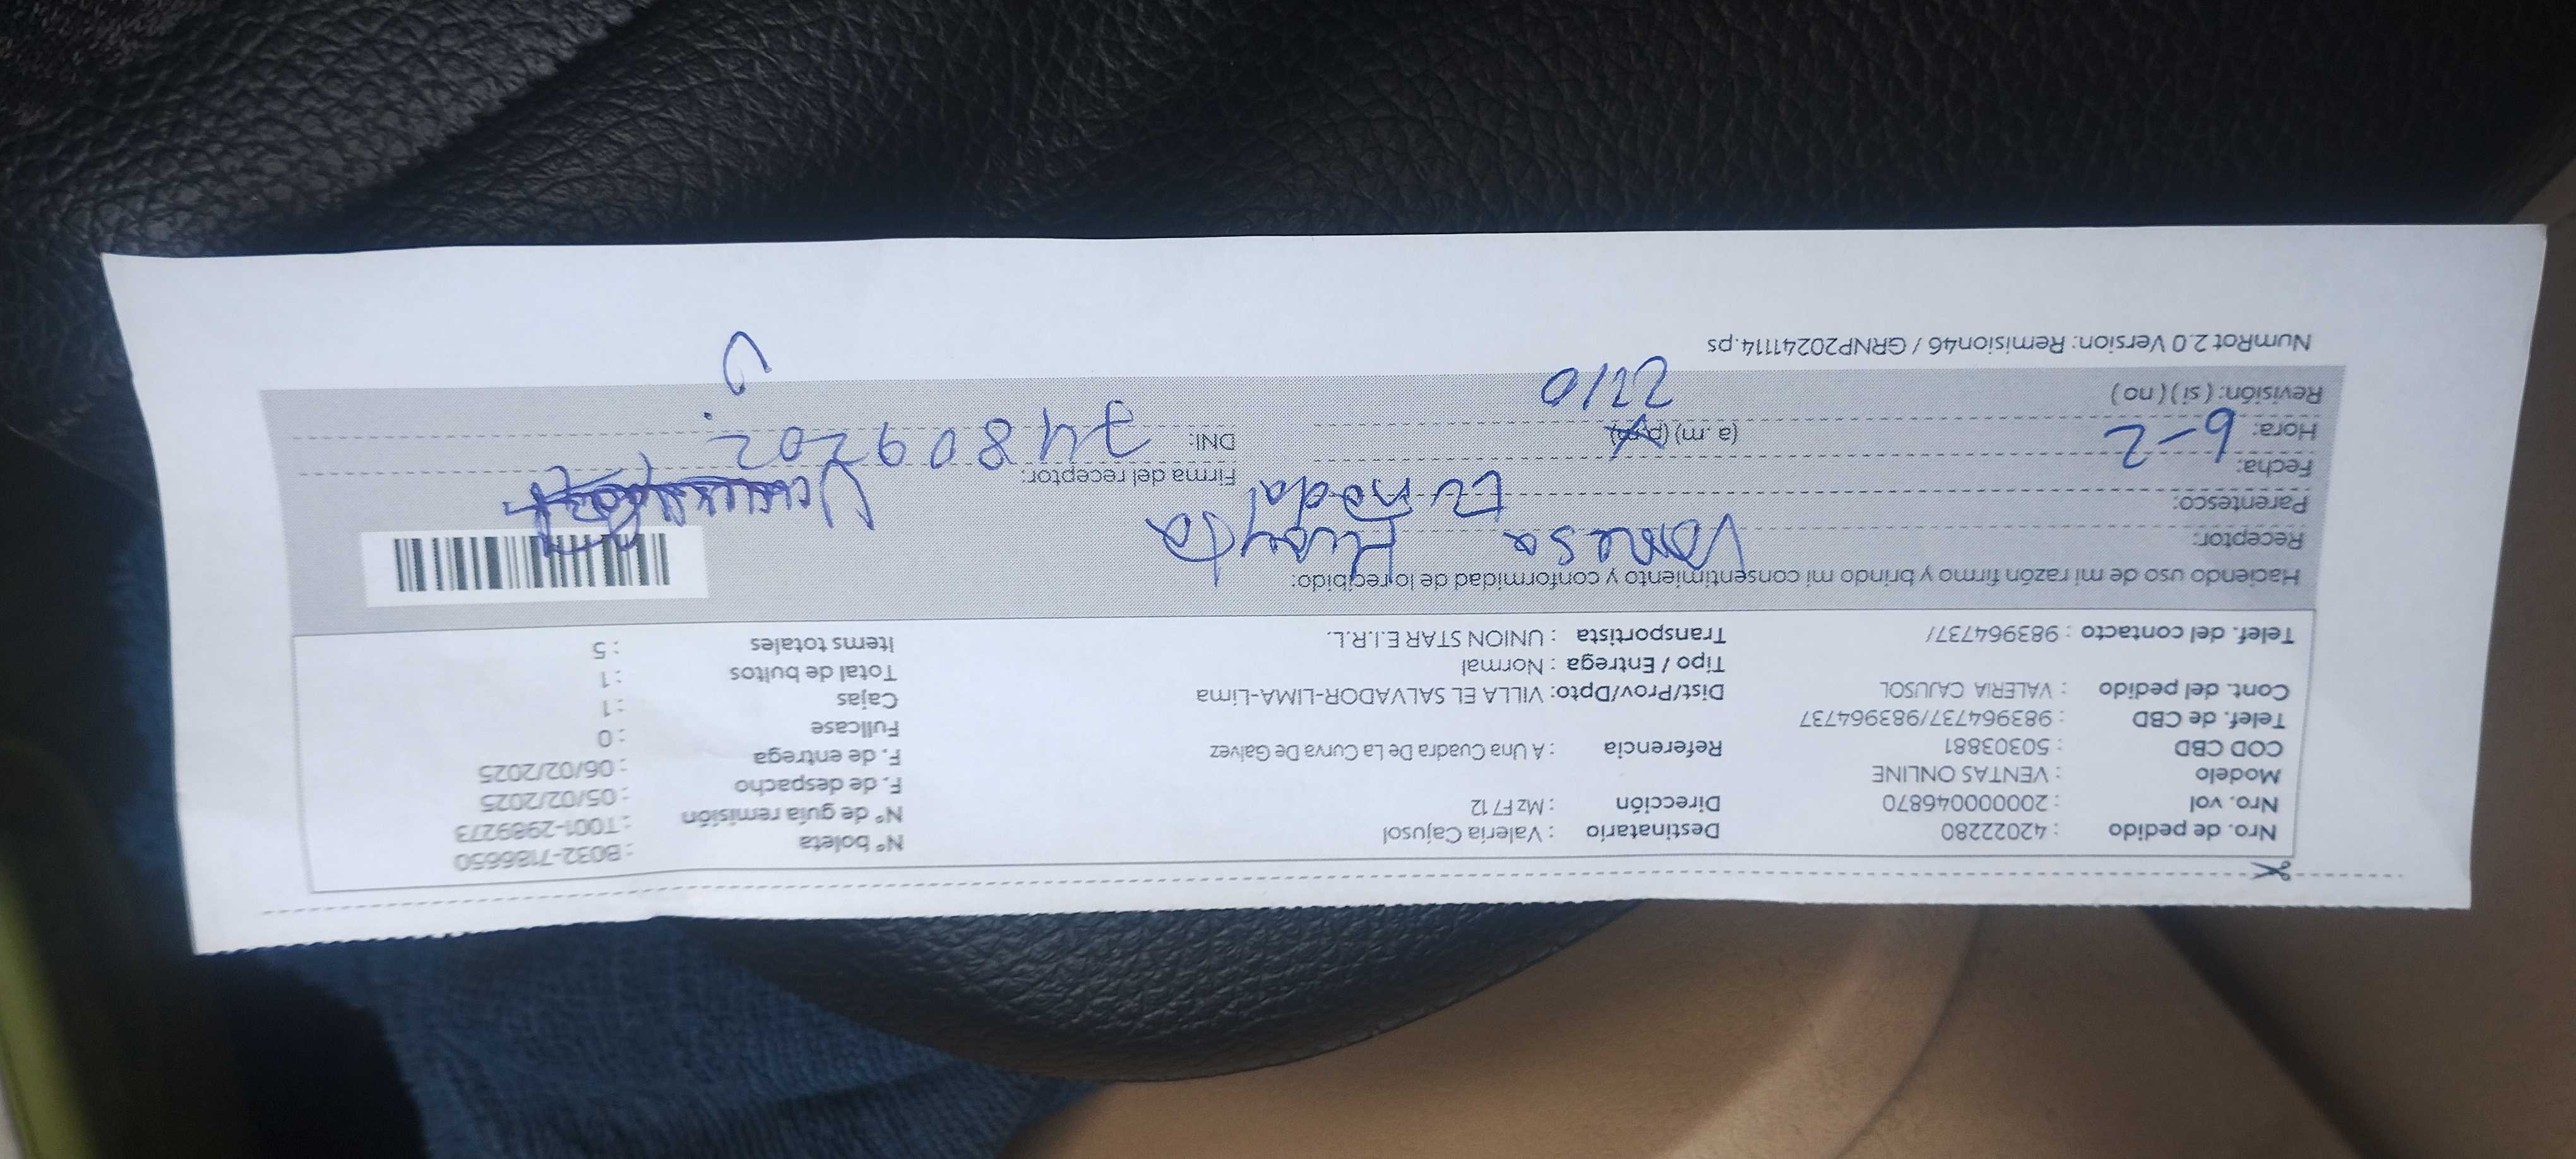 Nro. de pedido : 42022280 Destinatario : Valeria Cajusol N° boleta : B032-7186650
Nro. vol : 20000004687​0 Dirección : Mz F7 12 N° de guía remisión : T001-2989273
Modelo : VENTAS ONLINE F. de despacho : 05/02/2025
COD CBD : 50303881 Referencia : A Una Cuadra De La Curva De Galvez F. de entrega : 06/02/2025
Telef. de CBD : 983964737/983964737 Fullcase : 0
Cont. del pedido : VALERIA CAJUSOL Dist/Prov/Dpto: VILLA EL SALVADOR-LIMA-Lima Cajas : 1
Tipo / Entrega : Normal Total de bultos : 1
Telef. del contacto : 983964737/ Transportista : UNION STAR E.I.R.L. Items totales : 5
Haciendo uso de mi razón firmo y brindo mi consentimiento y conformidad de lo recibido:
Receptor: Vanesa Huayta
Parentesco:
Fecha: 6-2 Firma del receptor:
Hora: (a. m) (p. m) DNI: 74809202
Revisión: ( si ) ( no )
NumRot 2.0 Version: Remision46 / GRNP20241114.ps